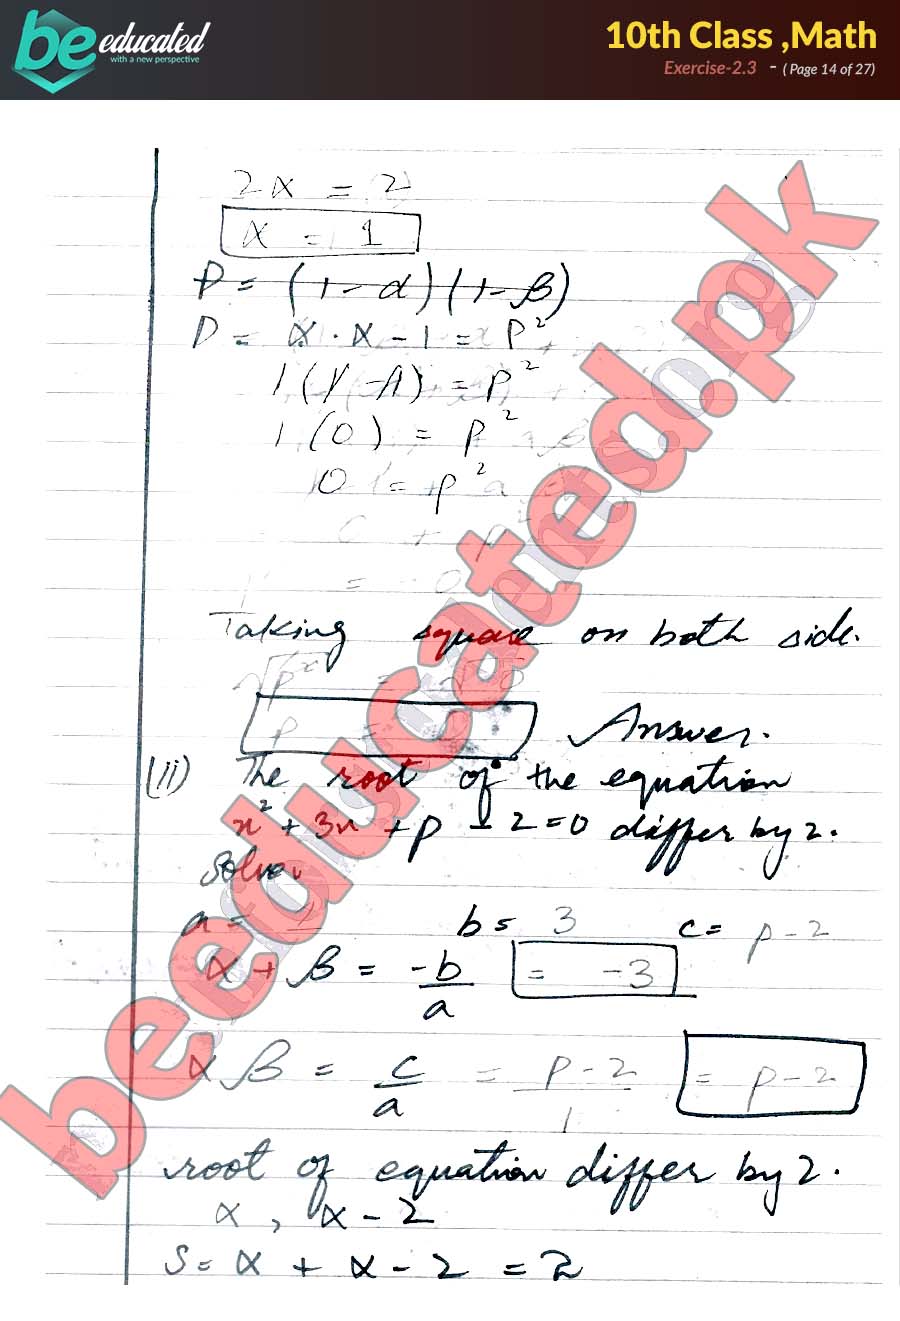 be educated
with a new perspective
10th Class ,Math
Exercise-2.3 - ( Page 14 of 27)
2α = 2
α = 1
P = (1-α)(1-β)
P = α · α - 1 = P²
1(1-1) = P²
1(0) = P²
0 = P²
Taking square on both side.
P =
Answer.
(ii) The root of the equation
x² + 3x + p - 2 = 0 differ by 2.
Solve.
a = 1 b = 3 c = p-2
α + β = -b/a = -3
αβ = c/a = p-2/1 = p-2
root of equation differ by 2.
α, α-2
S = α + α - 2 = 2
beeducated.pk